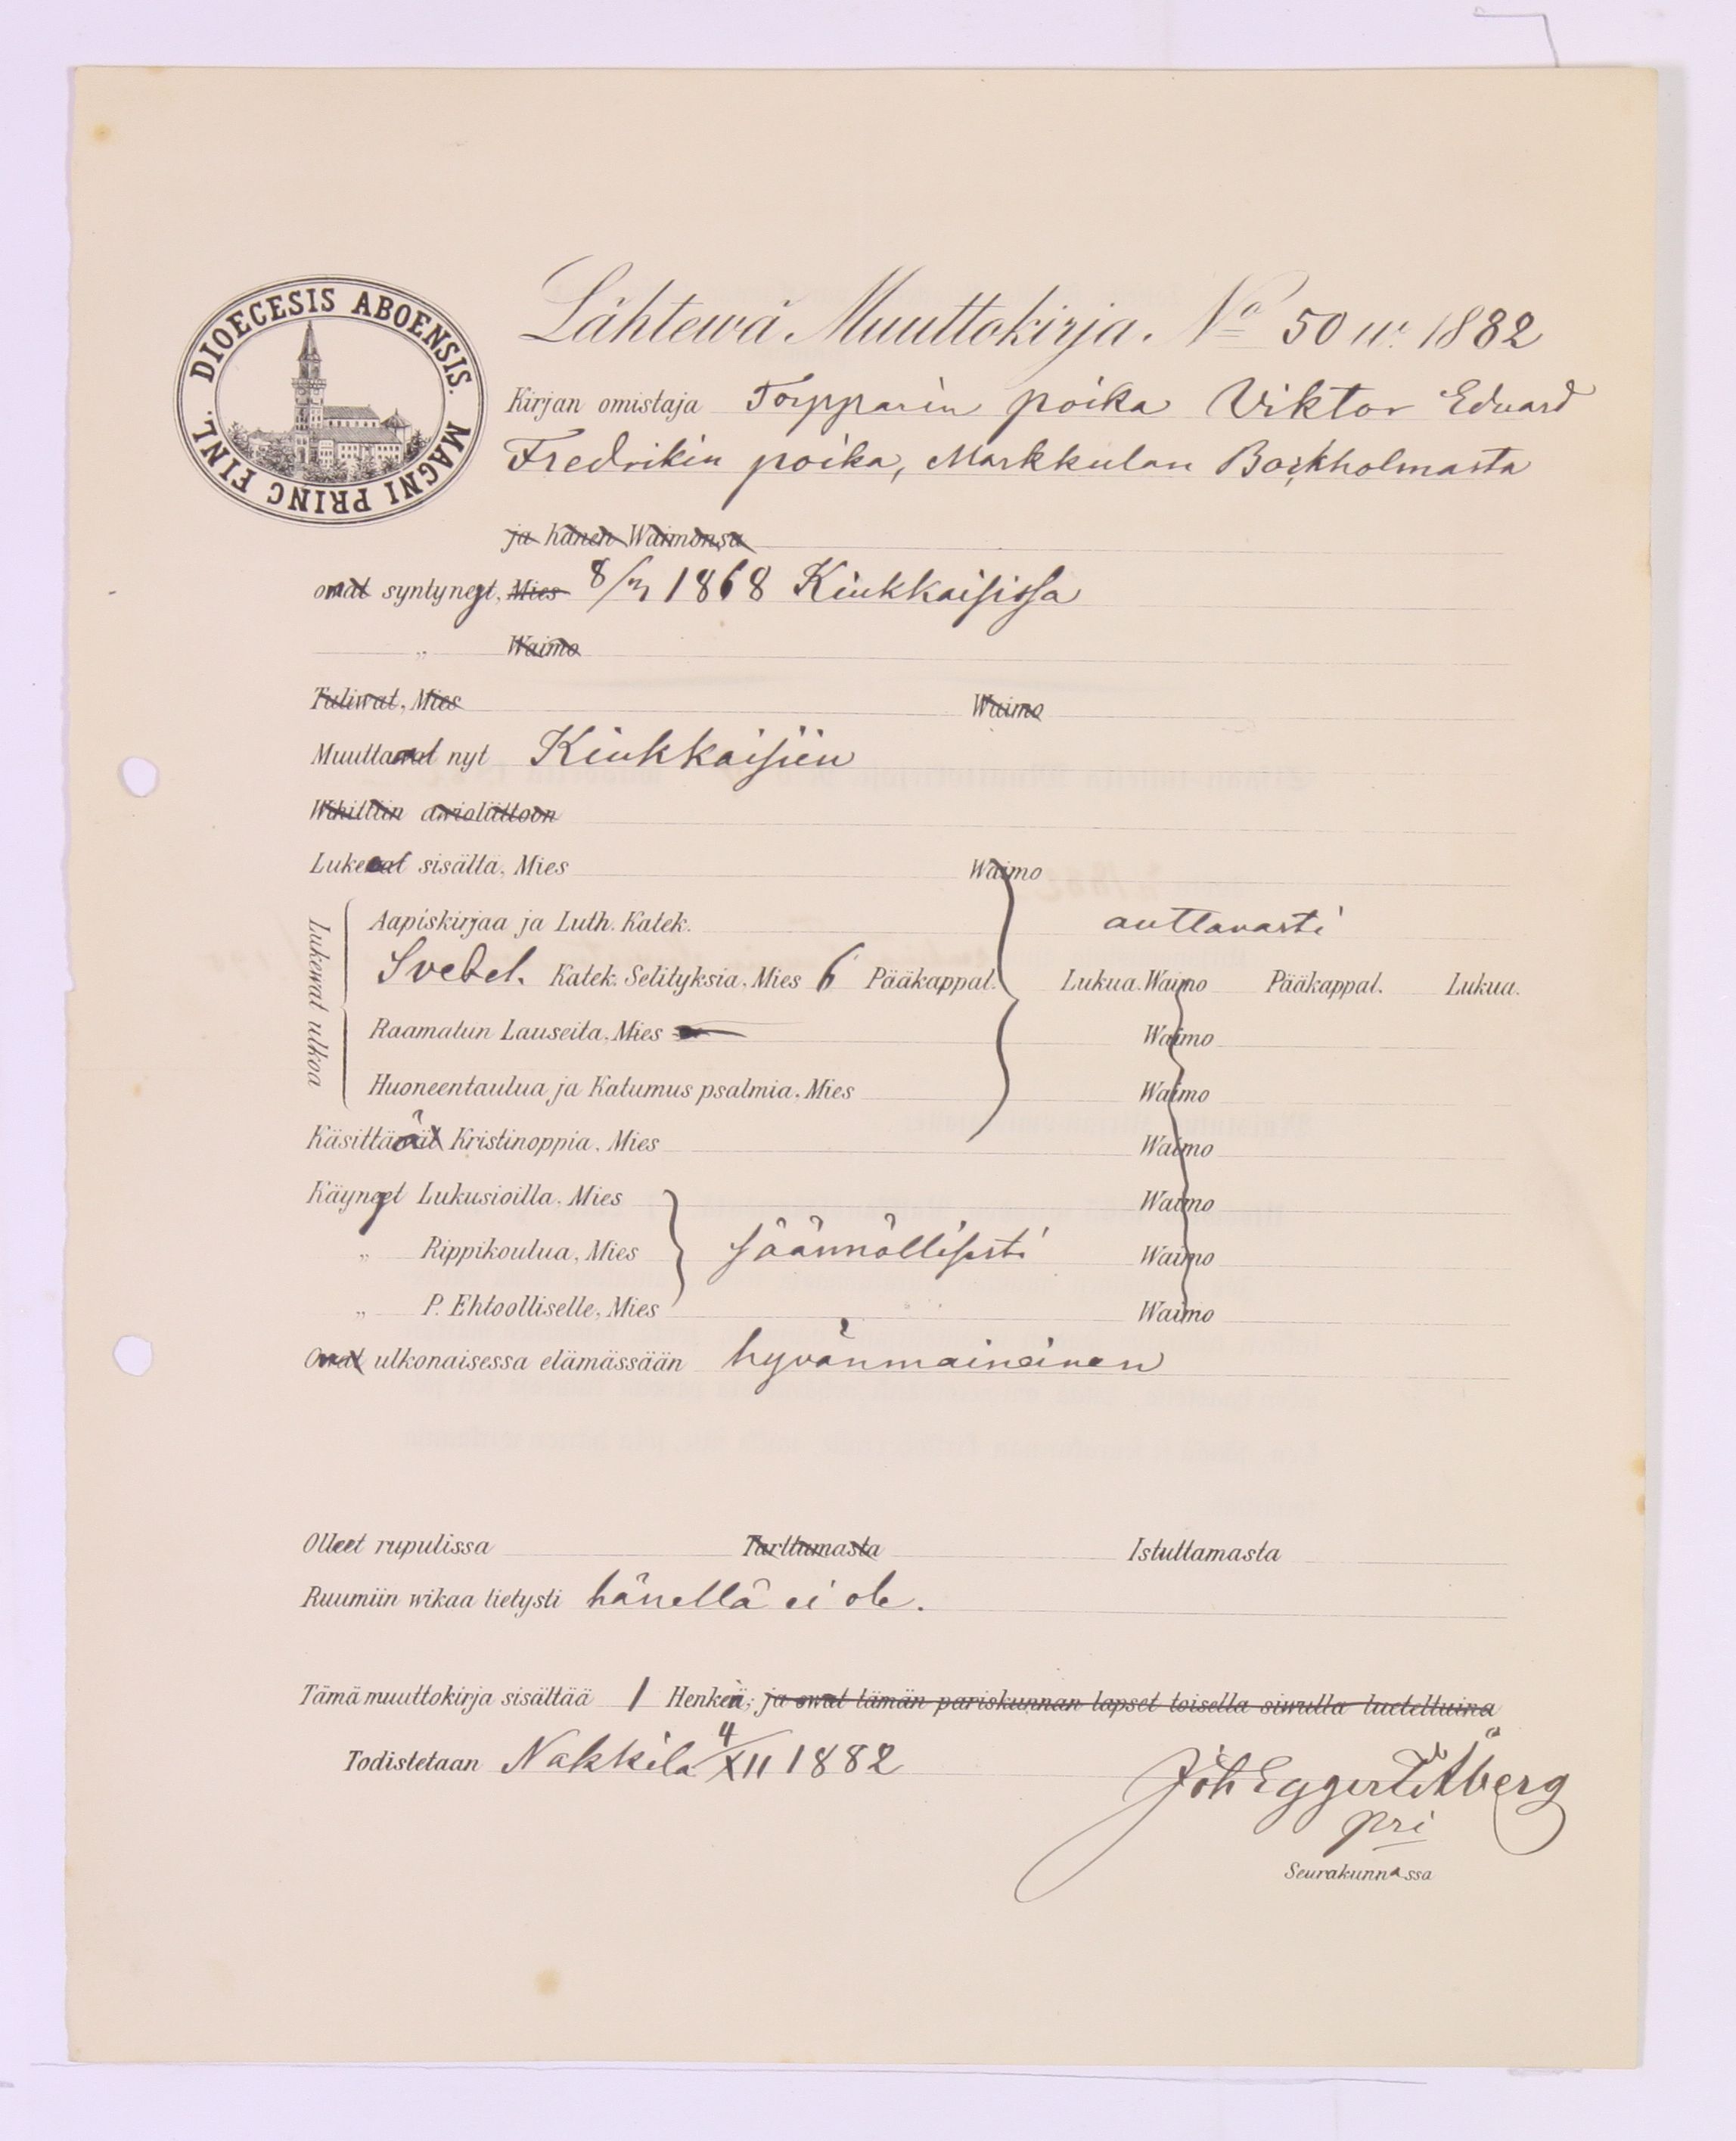 DIOECESIS ABOENSIS. MAGNI PRINC FINL.
Lähtewä Muuttokirja. No 50 w. 1882
Kirjan omistaja Torpparin poika Viktor Edvard
Fredrikin poika, Markkulan Borkholmasta
ja hänen Waimonsa
owat syntynyt, Mies 8/3 1868 Kiukkaisissa
„ Waimo
Tuliwat, Mies Waimo
Muuttawat nyt Kiukkaisiin
Wihittiin awioliittoon
Lukewat sisältä, Mies Waimo
Lukewat ulkoa
Aapiskirjaa ja Luth. Katek. auttavasti
Svebel. Katek. Selityksiä, Mies 6 Pääkappal. Lukua. Waimo Pääkappal. Lukua.
Raamatun Lauseita, Mies Waimo
Huoneentaulua ja Katumus psalmia, Mies Waimo
Käsittää Kristinoppia, Mies Waimo
Käynyt Lukusioilla, Mies Waimo
„ Rippikoulua, Mies säännöllisesti Waimo
„ P. Ehtoolliselle, Mies Waimo
Owat ulkonaisessa elämässään hyvänmaineinen
Olleet rupulissa Tarttumasta Istuttamasta
Ruumiin wikaa tietysti hänellä ei ole.
Tämä muuttokirja sisältää 1 Henkeä; ja owat tämän pariskunnan lapset toisella siwulla lueteltuina
Todistetaan Nakkila 4/XII 1882
Joh Eggert Åberg
pri
Seurakunnassa